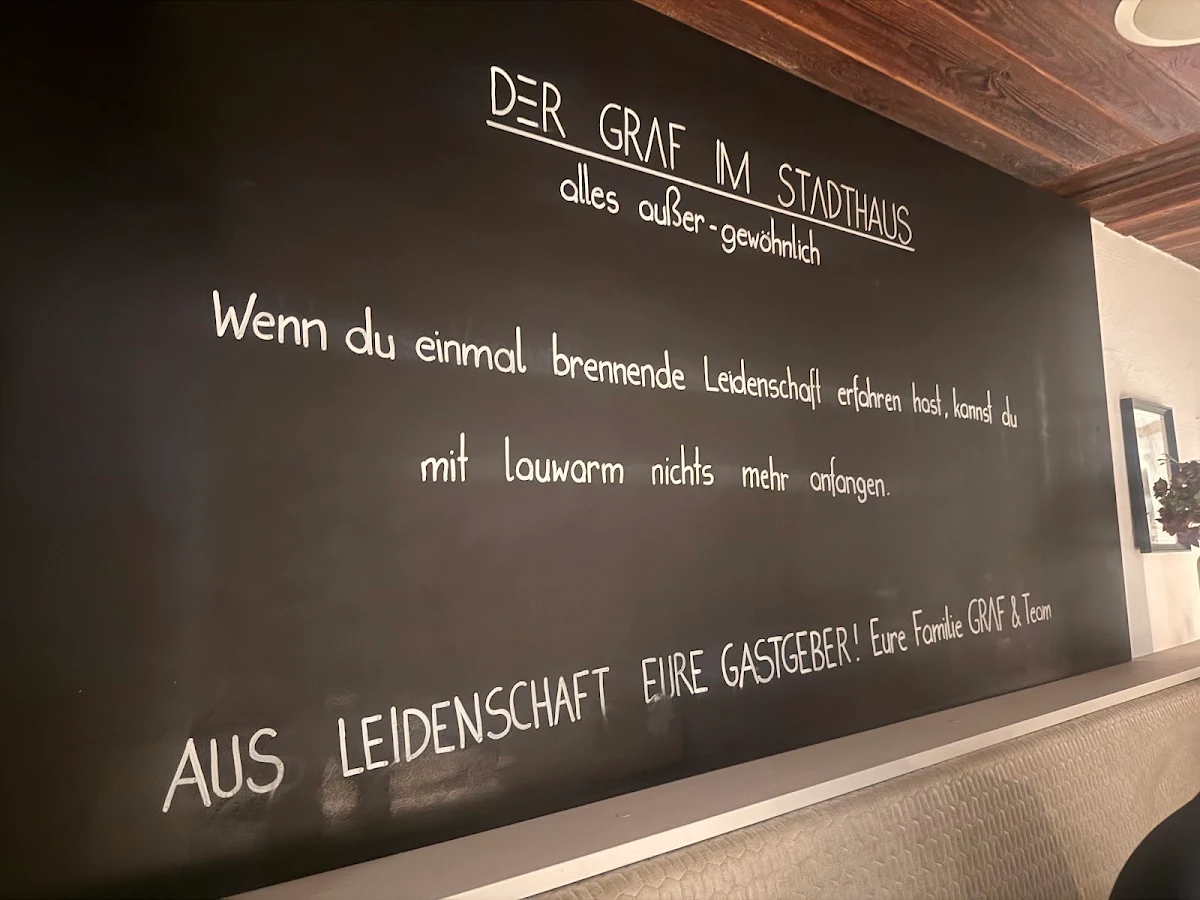 DER GRAF IM STADTHAUS
alles außer-gewöhnlich
Wenn du einmal brennende Leidenschaft erfahren hast, kannst du
mit lauwarm nichts mehr anfangen.
AUS LEIDENSCHAFT EURE GASTGEBER! Eure Familie GRAF & Team